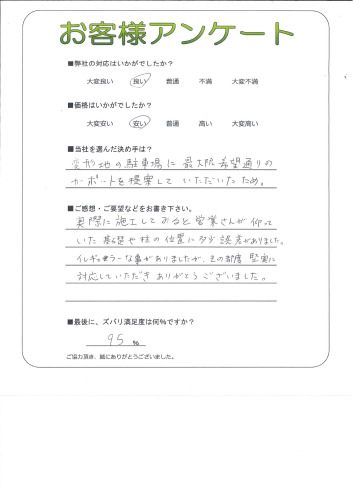 お客様アンケート
■弊社の対応はいかがでしたか？
大変良い　良い　普通　不満　大変不満
■価格はいかがでしたか？
大変安い　安い　普通　高い　大変高い
■当社を選んだ決め手は？
変形地の駐車場に最大限希望通りの
カーポートを提案していただいたため。
■ご感想・ご要望などをお書き下さい。
実際に施工してみると営業さんが仰って
いた基礎や柱の位置に多少誤差がありました。
イレギュラーな事がありましたが、その都度堅実に
対応していただきありがとうございました。
■最後に、ズバリ満足度は何％ですか？
95 %
ご協力頂き、誠にありがとうございました。